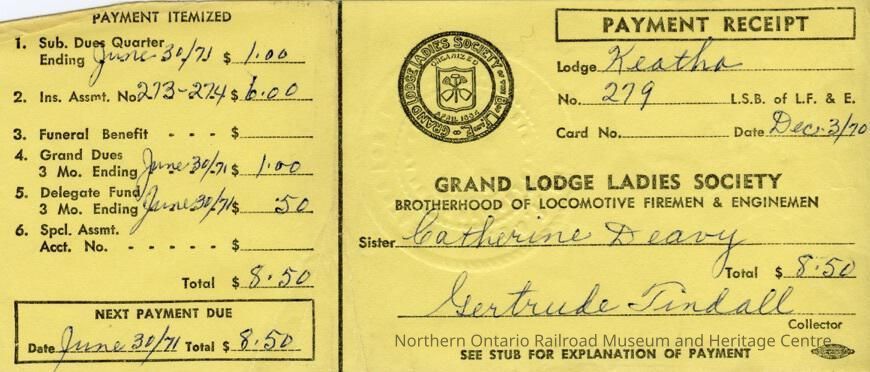 PAYMENT ITEMIZED
1. Sub. Dues Quarter
Ending June 30/71 $ 1.00
2. Ins. Assmt. No. 273-274 $ 6.00
3. Funeral Benefit - - - $
4. Grand Dues
3 Mo. Ending June 30/71 $ 1.00
5. Delegate Fund
3 Mo. Ending June 30/71 $ .50
6. Spcl. Assmt.
Acct. No. - - - - - $
Total $ 8.50
NEXT PAYMENT DUE
Date June 30/71 Total $ 8.50
PAYMENT RECEIPT
GRAND LODGE LADIES SOCIETY OF THE B. of L.F. & E.
ORGANIZED
APRIL 1884
Lodge Keatha
No. 279 L.S.B. of L.F. & E.
Card No. Date Dec. 3/70
GRAND LODGE LADIES SOCIETY
BROTHERHOOD OF LOCOMOTIVE FIREMEN & ENGINEMEN
Sister Catherine Deavy
Total $ 8.50
Gertrude Tindall
Collector
Northern Ontario Railroad Museum and Heritage Centre
SEE STUB FOR EXPLANATION OF PAYMENT